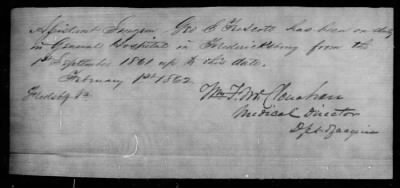 Assistant Surgeon Geo S. Trescott has been on duty
in General Hospital in Fredericksburg from the
1st September 1861 up to this date.
February 1st 1862.
Fredsbg Va
Wm F. McClenahan
Medical Director
Dpt